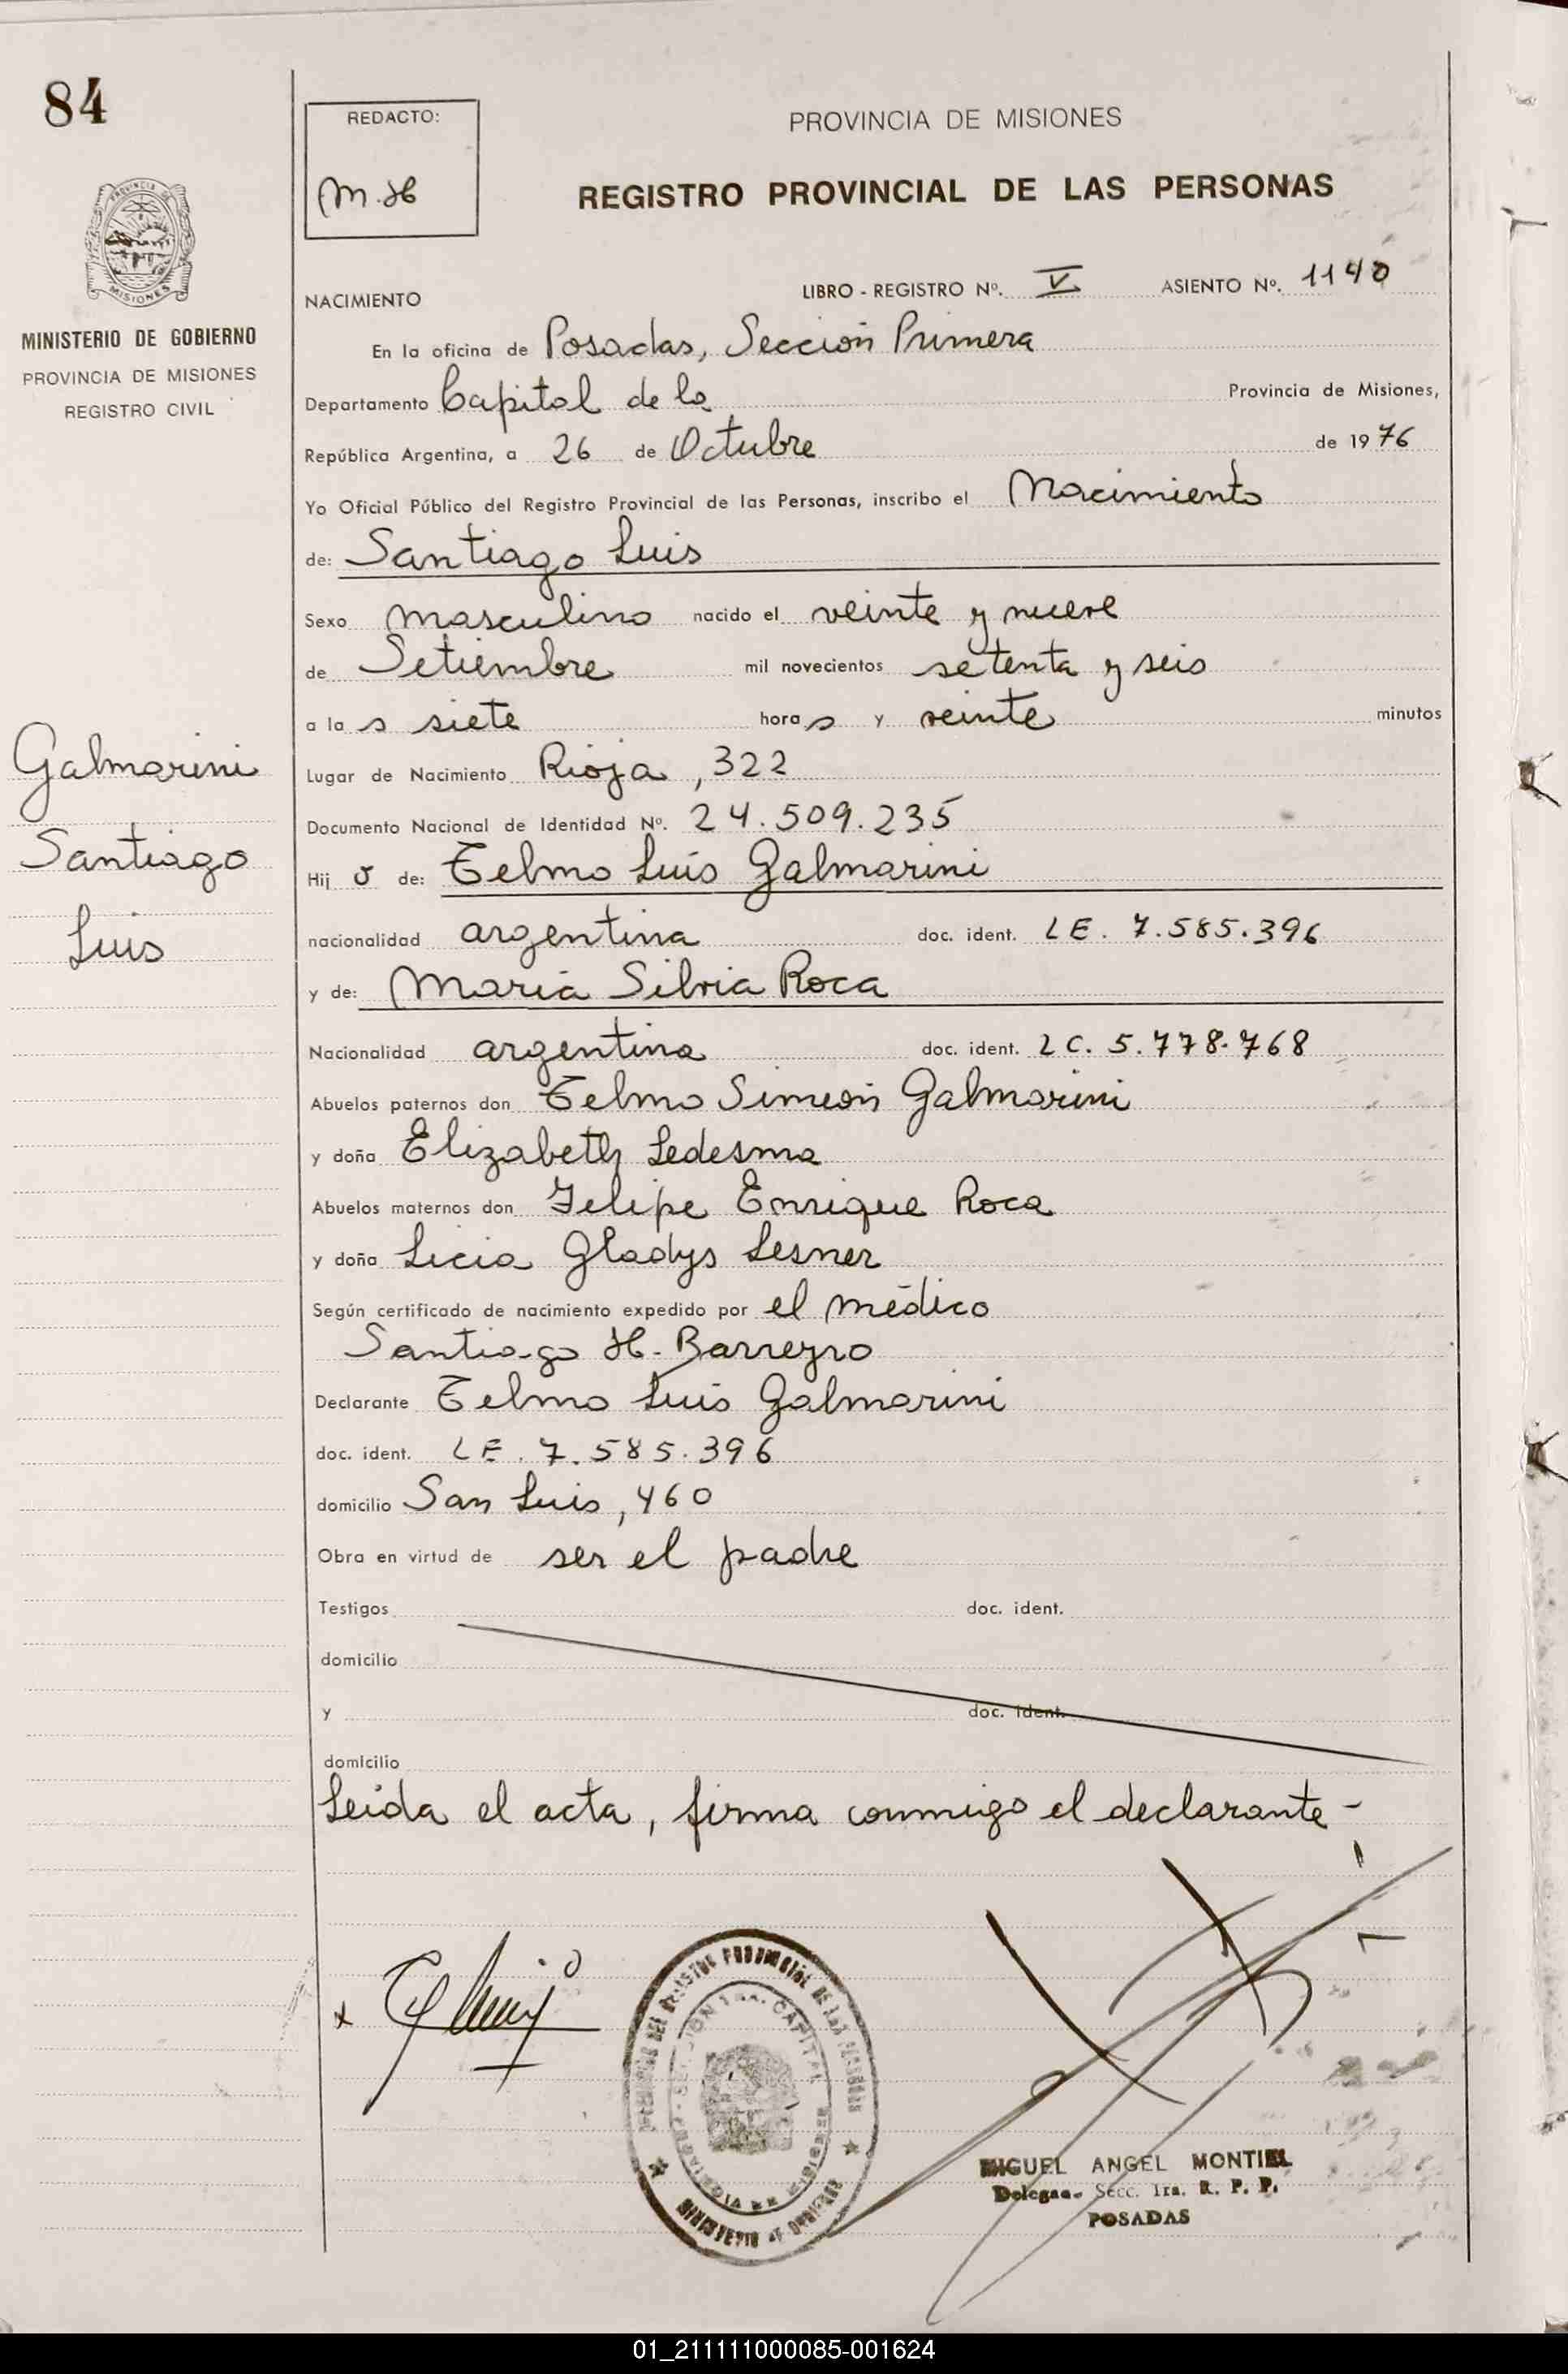 84
REDACTO:
M.H
PROVINCIA DE MISIONES
REGISTRO PROVINCIAL DE LAS PERSONAS
PROVINCIA DE
MISIONES
MINISTERIO DE GOBIERNO
PROVINCIA DE MISIONES
REGISTRO CIVIL
NACIMIENTO
LIBRO - REGISTRO Nº. V ASIENTO Nº. 1140
En la oficina de Posadas, Sección Primera
Departamento Capital de la Provincia de Misiones,
República Argentina, a 26 de Octubre de 1976
Yo Oficial Público del Registro Provincial de las Personas, inscribo el Nacimiento
de: Santiago Luis
Sexo masculino nacido el veinte y nueve
de Setiembre mil novecientos setenta y seis
a la s siete hora s y veinte minutos
Lugar de Nacimiento Rioja, 322
Documento Nacional de Identidad Nº. 24.509.235
Hij o de: Telmo Luis Galmarini
nacionalidad argentina doc. ident. LE. 7.585.396
y de: María Silvia Roca
Nacionalidad argentina doc. ident. LC. 5.778.768
Abuelos paternos don Telmo Simeón Galmarini
y doña Elizabeth Ledesma
Abuelos maternos don Felipe Enrique Roca
y doña Licia Gladys Lesner
Según certificado de nacimiento expedido por el médico
Santiago H. Barreyro
Declarante Telmo Luis Galmarini
doc. ident. LE. 7.585.396
domicilio San Luis, 460
Obra en virtud de ser el padre
Testigos doc. ident.
domicilio
y doc. ident.
domicilio
Leida el acta, firma conmigo el declarante -
Galmarini
Santiago
Luis
x
REGISTRO PROVINCIAL DE LAS PERSONAS
CAPITAL
PROVINCIA DE MISIONES
MINISTERIO DE GOBIERNO
MIGUEL ANGEL MONTIEL
Delegado Secc. 1ra. R. P. P.
POSADAS
01_211111000085-001624